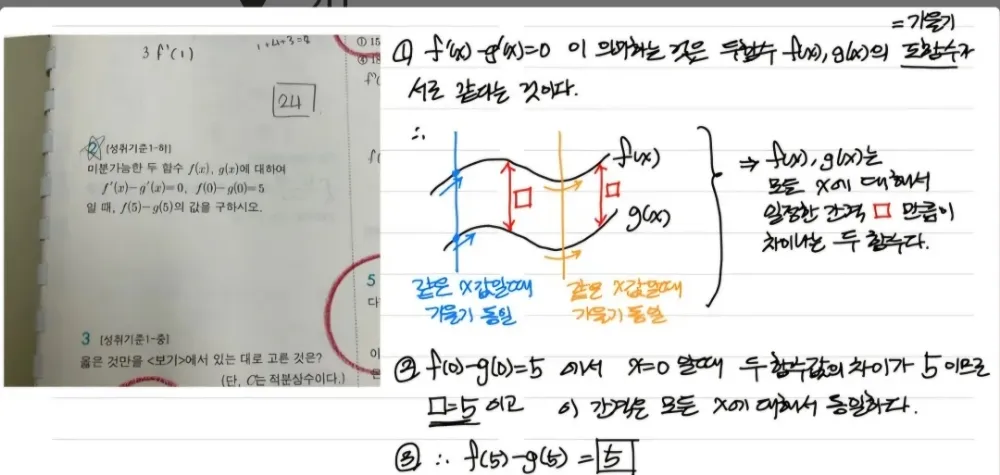 3 f'(1)
1+4+3=8
24
① 15
④ 18
2 [성취기준1-하]
미분가능한 두 함수 f(x), g(x)에 대하여
f'(x)-g'(x)=0, f(0)-g(0)=5
일 때, f(5)-g(5)의 값을 구하시오.
5
3 [성취기준1-중]
옳은 것만을 <보기>에서 있는 대로 고른 것은?
(단, C는 적분상수이다.)
=기울기
① f'(x)-g'(x)=0 이 의미하는 것은 두함수 f(x), g(x)의 도함수가
서로 같다는 것이다.
∴
f(x)
g(x)
같은 x값일때
기울기 동일
같은 x값일때
기울기 동일
⇒ f(x), g(x)는
모든 x에 대해서
일정한 간격 □ 만큼이
차이나는 두 함수다.
② f(0)-g(0)=5 에서 x=0 일때 두 함수값의 차이가 5이므로
□=5 이고 이 간격은 모든 x에 대해서 동일하다.
③ ∴ f(5)-g(5) = 5